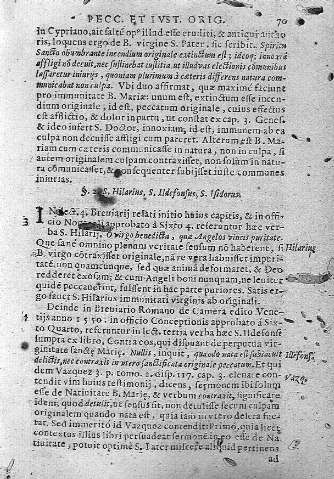 PECC. ET IUST. ORIG. 70
in Cypriano, ait saltē opus illud esse eruditi, & antiqui autho
ris, loquens ergo de B. virgine S. Pater, sic scribit. Spiritu
Sancto obumbrante incendium originale extinctum est; ideoq; innoxiā
affligi nō decuit, nec sustinebat iustitia ut illud vas electionis communibus
lassaretur iniurijs, quoniam plurimum à cæteris differens natura com-
municabat non culpa. Ubi duo affirmat, quæ maximè faciunt
pro immunitate B. Mariæ: unum est, extinctum esse incen
dium originale, id est, peccatum originale, cuius effectus
est afflictio, & dolor in partu, ut constat ex cap. 3. Genes.
& ideo infert S. Doctor, innoxiam, id est, immunem ab ea
culpa non decuisse affligi cum pareret. Alterum est B. Ma-
riam cum cæteris communicasse in natura, non in culpa, si
autem originalem culpam contraxisset, non solum in natu-
ra cōmunicasset, & consequenter subijsset iustè communes
iniurias.
S. Hilarius, S. Ildefonsus, S. Isidorus.
3 Breviarij relati initio huius capitis, & in offi-
cio approbato à Sixto 4. referuntur hæc ver-
ba S. Hilarij. O virgo benedicta, quæ Angelos vincis puritate.
Que sanè omnino plenam veritatē sensum nō haberent, si S. Hilarius
B. virgo cōtraxisset originale, nā re vera habuisset impuri-
tatē, non quamcunque, sed quæ anima deformaret, & Deo
redderet exosam, & cum Angeli boni nunquam, ne leviter
quidē peccaverint, fuissent in hac parte puriores. Satis er-
go favet S. Hilarius immunitati virginis ab originali.
4 Deinde in Breviario Romano de Camera edito Vene-
tijs anno 1550. in officio Conceptionis approbato à Sixto
Quarto, referuntur in lect. tertia verba hæc S. Ildefonsi
sumpta ex libro, Contra eos, qui disputant de perpetua vir-
ginitate sanctæ Mariæ. Nullis, inquit, quādo nata est subiacuit Ildefons.
delictis, nec contraxit in utero sanctificata originale peccatum. Et qui
dem Vazquez 3. p. tomo 2. disp. 117. cap. 2. elevare con- Vazq.
tendit vim huius testimonij, dicens, sermonem ibi solum
esse de Nativitate B. Mariæ, & verbum contraxit, significare
idem, quod detulit,
originalem quando nata est, quia iam in utero deleta fue-
rat. Sed immeritò id Vazquez contendit: Primò, quia licet
contextus illius libri persuadeat sermonē in eo esse de Na
tivitate, potuit optimè S. Pater miscere aliquid pertinens
ad